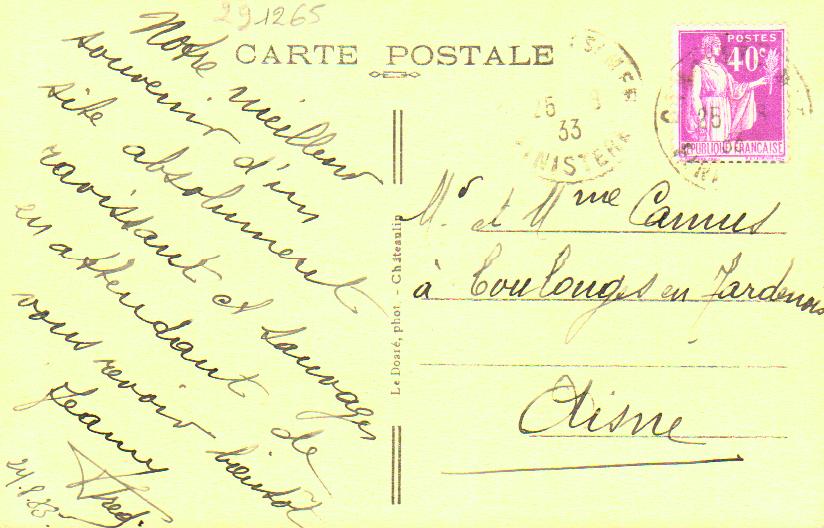 291265
CARTE POSTALE
Notre meilleur
souvenir d'un
site absolument
ravissant et sauvages
en attendant de
vous revoir bientôt
Jeanne
Fred.
24.8.33
Le Doaré, phot. - Châteaulin
POSTES
40c
RÉPUBLIQUE FRANÇAISE
S/MER
25 8
33
FINISTERE
25 8
Mr et Mme Camus
à Coulonges en Tardenois
Aisne